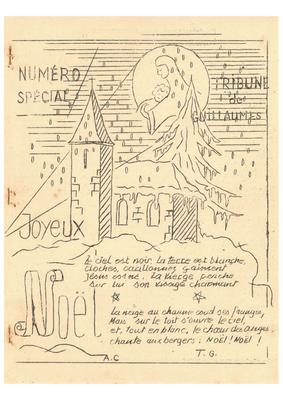 NUMÉRO
SPÉCIAL
TRIBUNE
de
GUILLAUMES
Joyeux
Noël
Le ciel est noir, la terre est blanche,
cloches, carillonnez gaiment
Jésus est né. La Vierge penche
sur lui son visage charmant
la neige au chaume coud ses franges,
Mais sur le toit s'ouvre le ciel,
et, tout en blanc, le chœur des anges
chante aux bergers : NOËL! NOËL!
A.C
T.G.